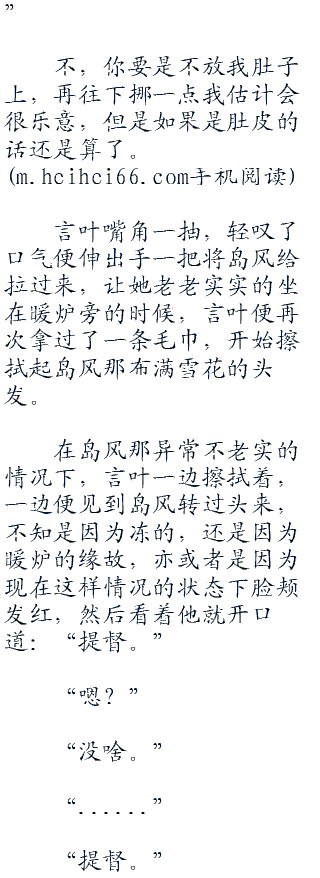 ”
不，你要是不放我肚子
上，再往下挪一点我估计会
很乐意，但是如果是肚皮的
话还是算了。
(m.hcihci66.com手机阅读)
言叶嘴角一抽，轻叹了
口气便伸出手一把将岛风给
拉过来，让她老老实实的坐
在暖炉旁的时候，言叶便再
次拿过了一条毛巾，开始擦
拭起岛风那布满雪花的头
发。
在岛风那异常不老实的
情况下，言叶一边擦拭着，
一边便见到岛风转过头来，
不知是因为冻的，还是因为
暖炉的缘故，亦或者是因为
现在这样情况的状态下脸颊
发红，然后看着他就开口
道：“提督。”
“嗯？”
“没啥。”
“......”
“提督。”